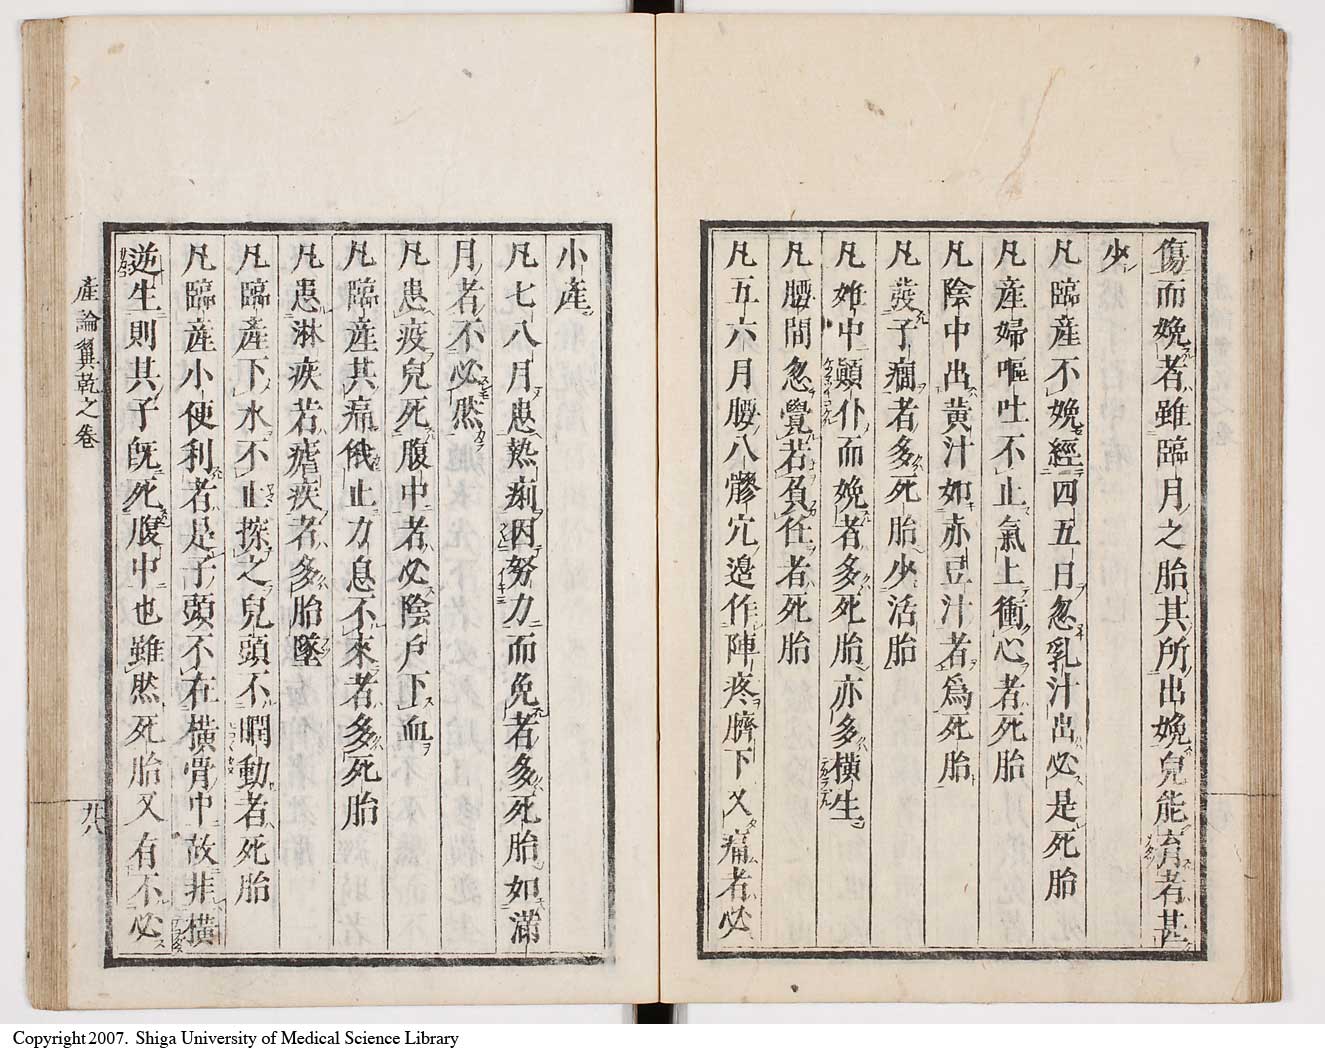 傷而娩者雖臨月之胎其所出娩兒能育者甚
少
凡臨産不娩經四五日忽乳汁出必是死胎
凡産婦嘔吐不止氣上衝心者死胎
凡陰中出黄汁如赤豆汁者爲死胎
凡發子癇者多死胎少活胎
凡妊中顚仆而娩者多死胎亦多横生
凡腰間忽覺若負任者死胎
凡五六月腰八髎穴邉作陣疼臍下又痛者必
小産
凡七八月患熱痢因努力而免者多死胎如滿
月者不必然
凡患疫兒死腹中者必陰戸下血
凡臨産其痛俄止力息不來者多死胎
凡患淋疾若瘧疾者多胎墜
凡臨産下水不止探之兒頭不瞤動者死胎
凡臨産小便利者是子頭不在横骨中故非横
逆生則其子既死腹中也雖然死胎又有不必
産論翼乾之卷
九八
Copyright 2007. Shiga University of Medical Science Library